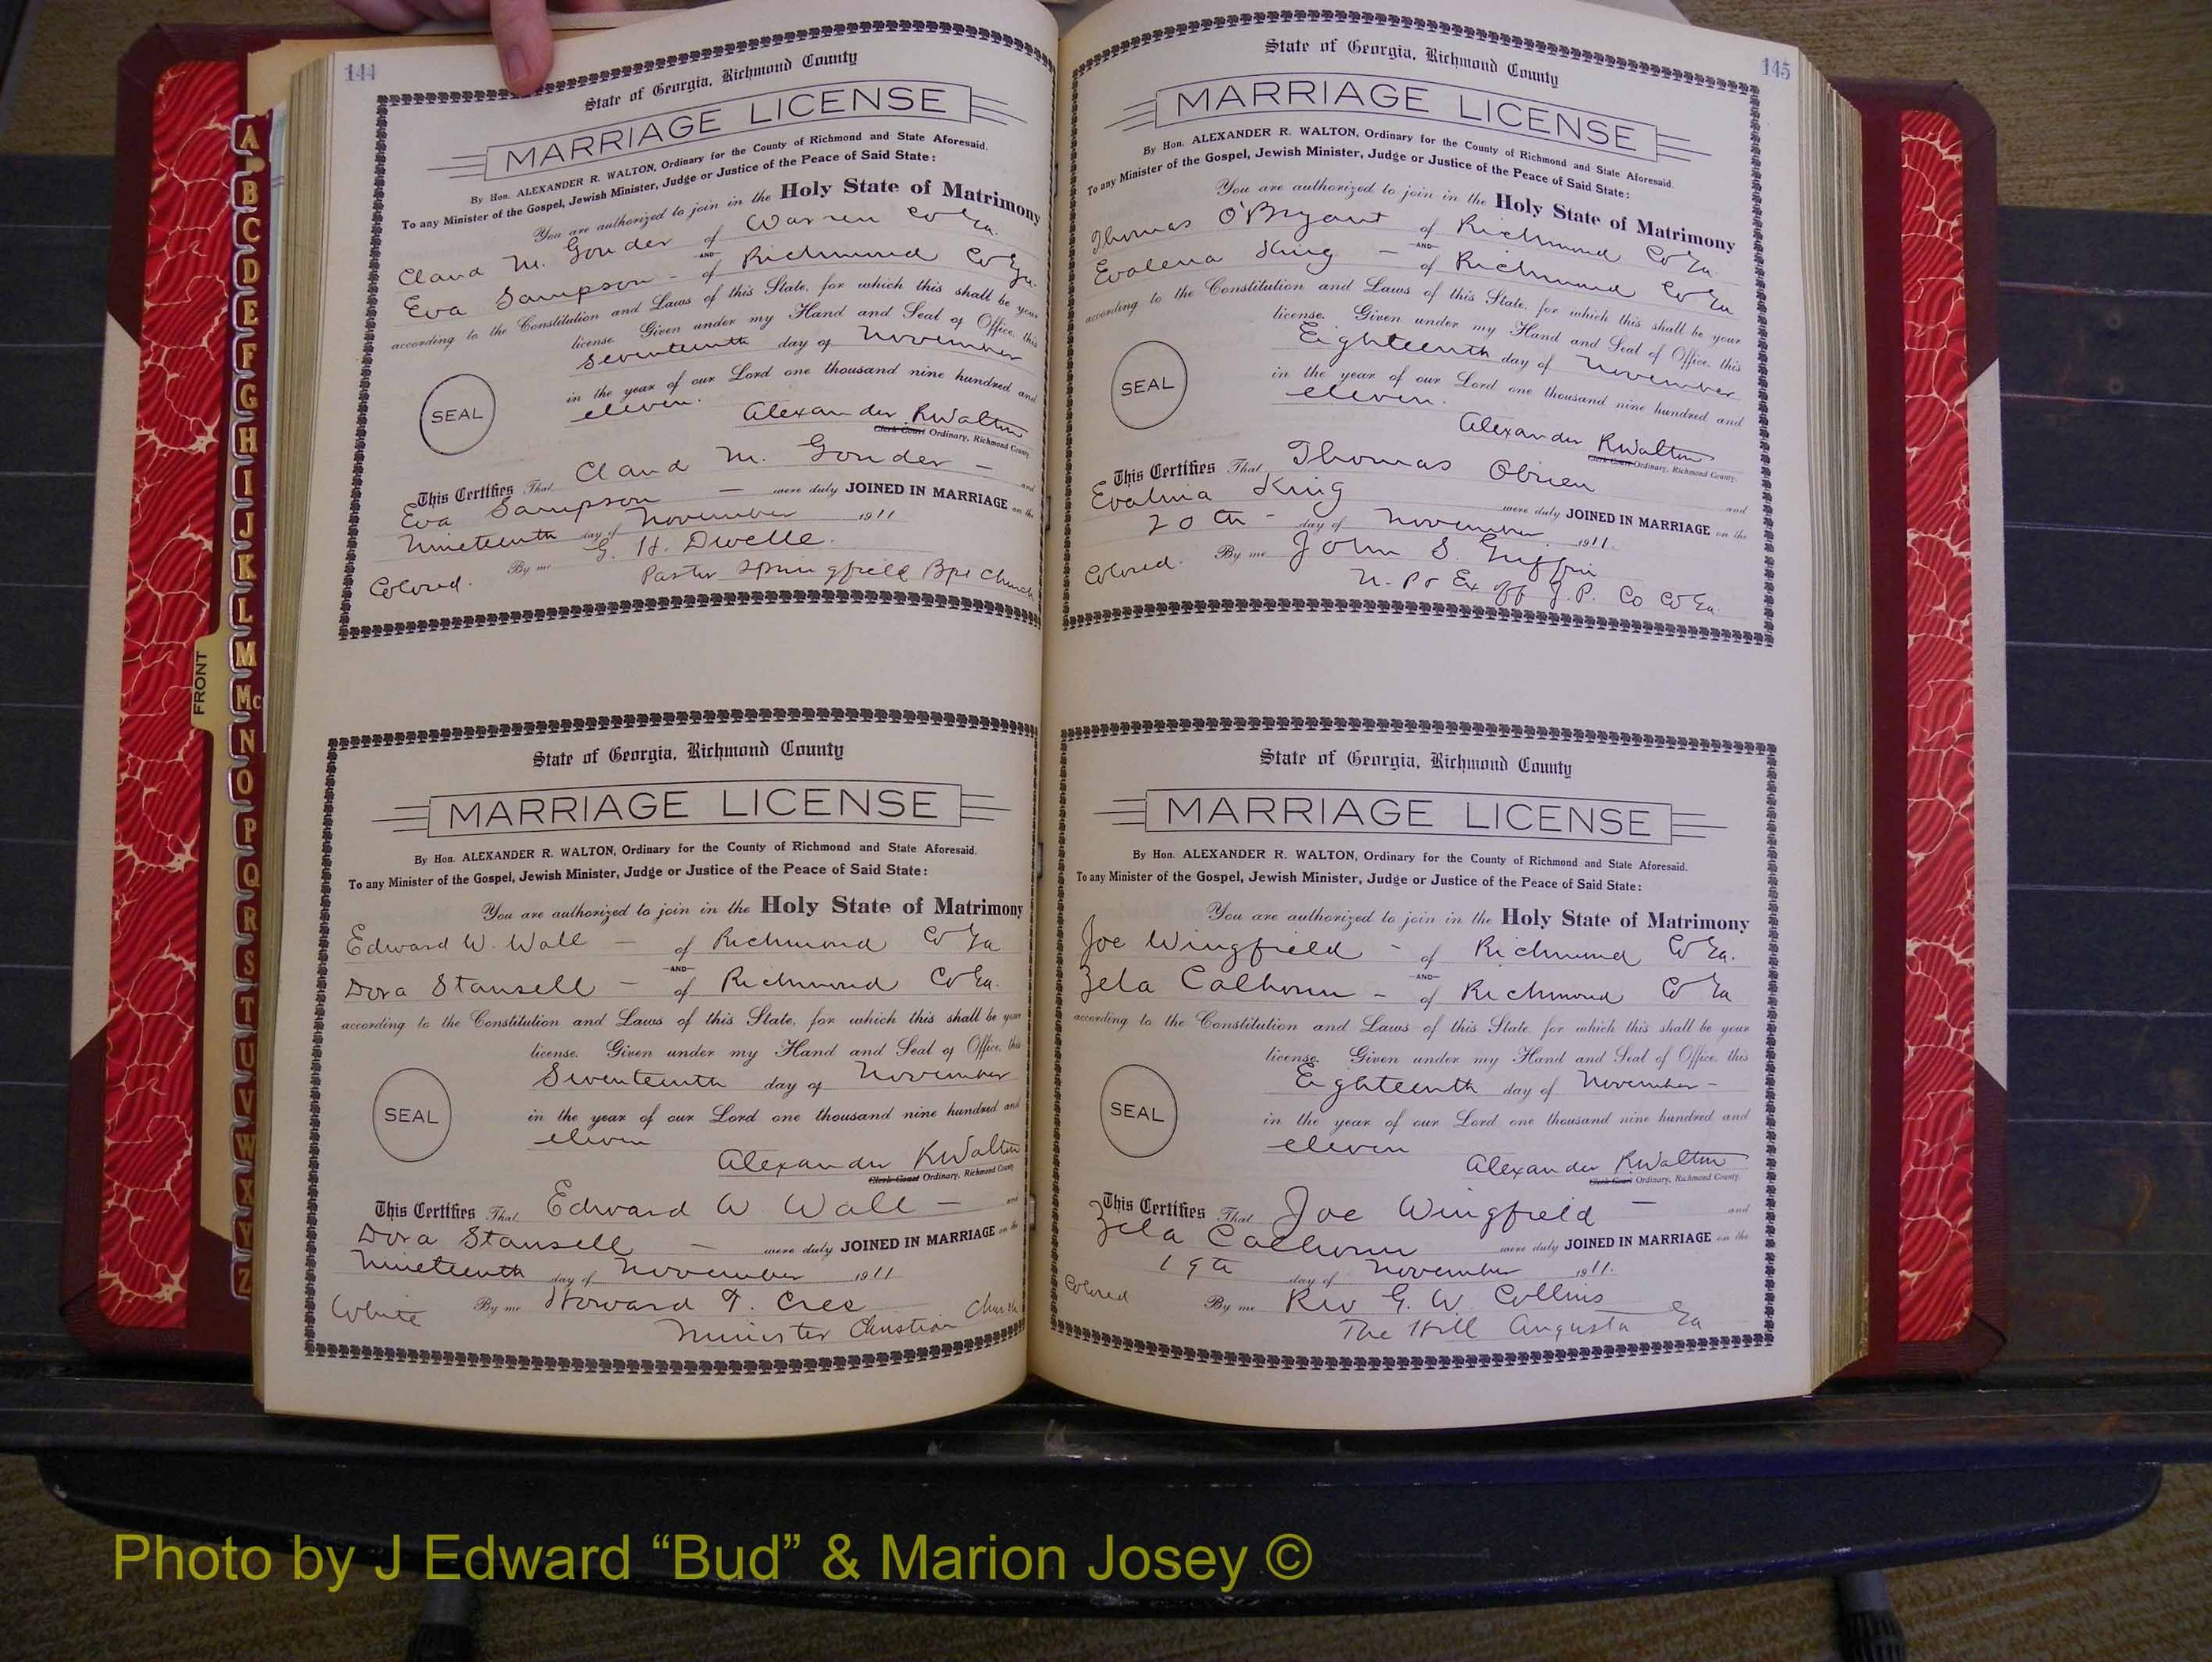 144
State of Georgia, Richmond County
MARRIAGE LICENSE
By Hon. ALEXANDER R. WALTON, Ordinary for the County of Richmond and State Aforesaid.
To any Minister of the Gospel, Jewish Minister, Judge or Justice of the Peace of Said State:
You are authorized to join in the Holy State of Matrimony
Claud M. Gonder of Warren Co Ga.
AND
Eva Sampson - of Richmond Co Ga.
according to the Constitution and Laws of this State, for which this shall be your
license. Given under my Hand and Seal of Office, this
Seventeenth day of November
in the year of our Lord one thousand nine hundred and
eleven.
SEAL
Alexander R Walton
Clerk Court Ordinary, Richmond County.
This Certifies That Claud M. Gonder - and
Eva Sampson - were duly JOINED IN MARRIAGE on the
Nineteenth day of November 1911
By me G. H. Dwelle.
Colored. Pastor Springfield Bpt Church
State of Georgia, Richmond County
MARRIAGE LICENSE
By Hon. ALEXANDER R. WALTON, Ordinary for the County of Richmond and State Aforesaid.
To any Minister of the Gospel, Jewish Minister, Judge or Justice of the Peace of Said State:
You are authorized to join in the Holy State of Matrimony
Edward W. Wall - of Richmond Co Ga
AND
Dora Stansell - of Richmond Co Ga.
according to the Constitution and Laws of this State, for which this shall be your
license. Given under my Hand and Seal of Office, this
Seventeenth day of November
in the year of our Lord one thousand nine hundred and
eleven
SEAL
Alexander R Walton
Clerk Court Ordinary, Richmond County
This Certifies That Edward W Wall - and
Dora Stansell - were duly JOINED IN MARRIAGE on the
Nineteenth day of November 1911
White By me Howard T. Cree
Minister Christian Church
145
State of Georgia, Richmond County
MARRIAGE LICENSE
By Hon. ALEXANDER R. WALTON, Ordinary for the County of Richmond and State Aforesaid.
To any Minister of the Gospel, Jewish Minister, Judge or Justice of the Peace of Said State:
You are authorized to join in the Holy State of Matrimony
Thomas O'Bryant of Richmond Co Ga.
AND
Evalena King - of Richmond Co Ga
according to the Constitution and Laws of this State, for which this shall be your
license. Given under my Hand and Seal of Office, this
Eighteenth day of November
in the year of our Lord one thousand nine hundred and
eleven.
SEAL
Alexander R Walton
Clerk Court Ordinary, Richmond County.
This Certifies That Thomas Obrien and
Evalina King were duly JOINED IN MARRIAGE on the
20th - day of November 1911.
Colored. By me John S. Griffin
N. P & Ex Off J. P. Co Co Ga.
State of Georgia, Richmond County
MARRIAGE LICENSE
By Hon. ALEXANDER R. WALTON, Ordinary for the County of Richmond and State Aforesaid.
To any Minister of the Gospel, Jewish Minister, Judge or Justice of the Peace of Said State:
You are authorized to join in the Holy State of Matrimony
Joe Wingfield - of Richmond Co Ga.
AND
Zela Calhoun - of Richmond Co Ga
according to the Constitution and Laws of this State, for which this shall be your
license. Given under my Hand and Seal of Office, this
Eighteenth day of November -
in the year of our Lord one thousand nine hundred and
eleven
SEAL
Alexander R. Walton
Clerk Court Ordinary, Richmond County.
This Certifies That Joe Wingfield - and
Zela Calhoun were duly JOINED IN MARRIAGE on the
19th day of November 1911.
Colored By me Rev G. W Collins
The Hill Augusta Ga
FRONT
A
B
C
D
E
F
G
H
I
J
K
L
M
Mc
N
O
P
Q
R
S
T
U
V
W
X
Y
Z
Photo by J Edward “Bud” & Marion Josey ©